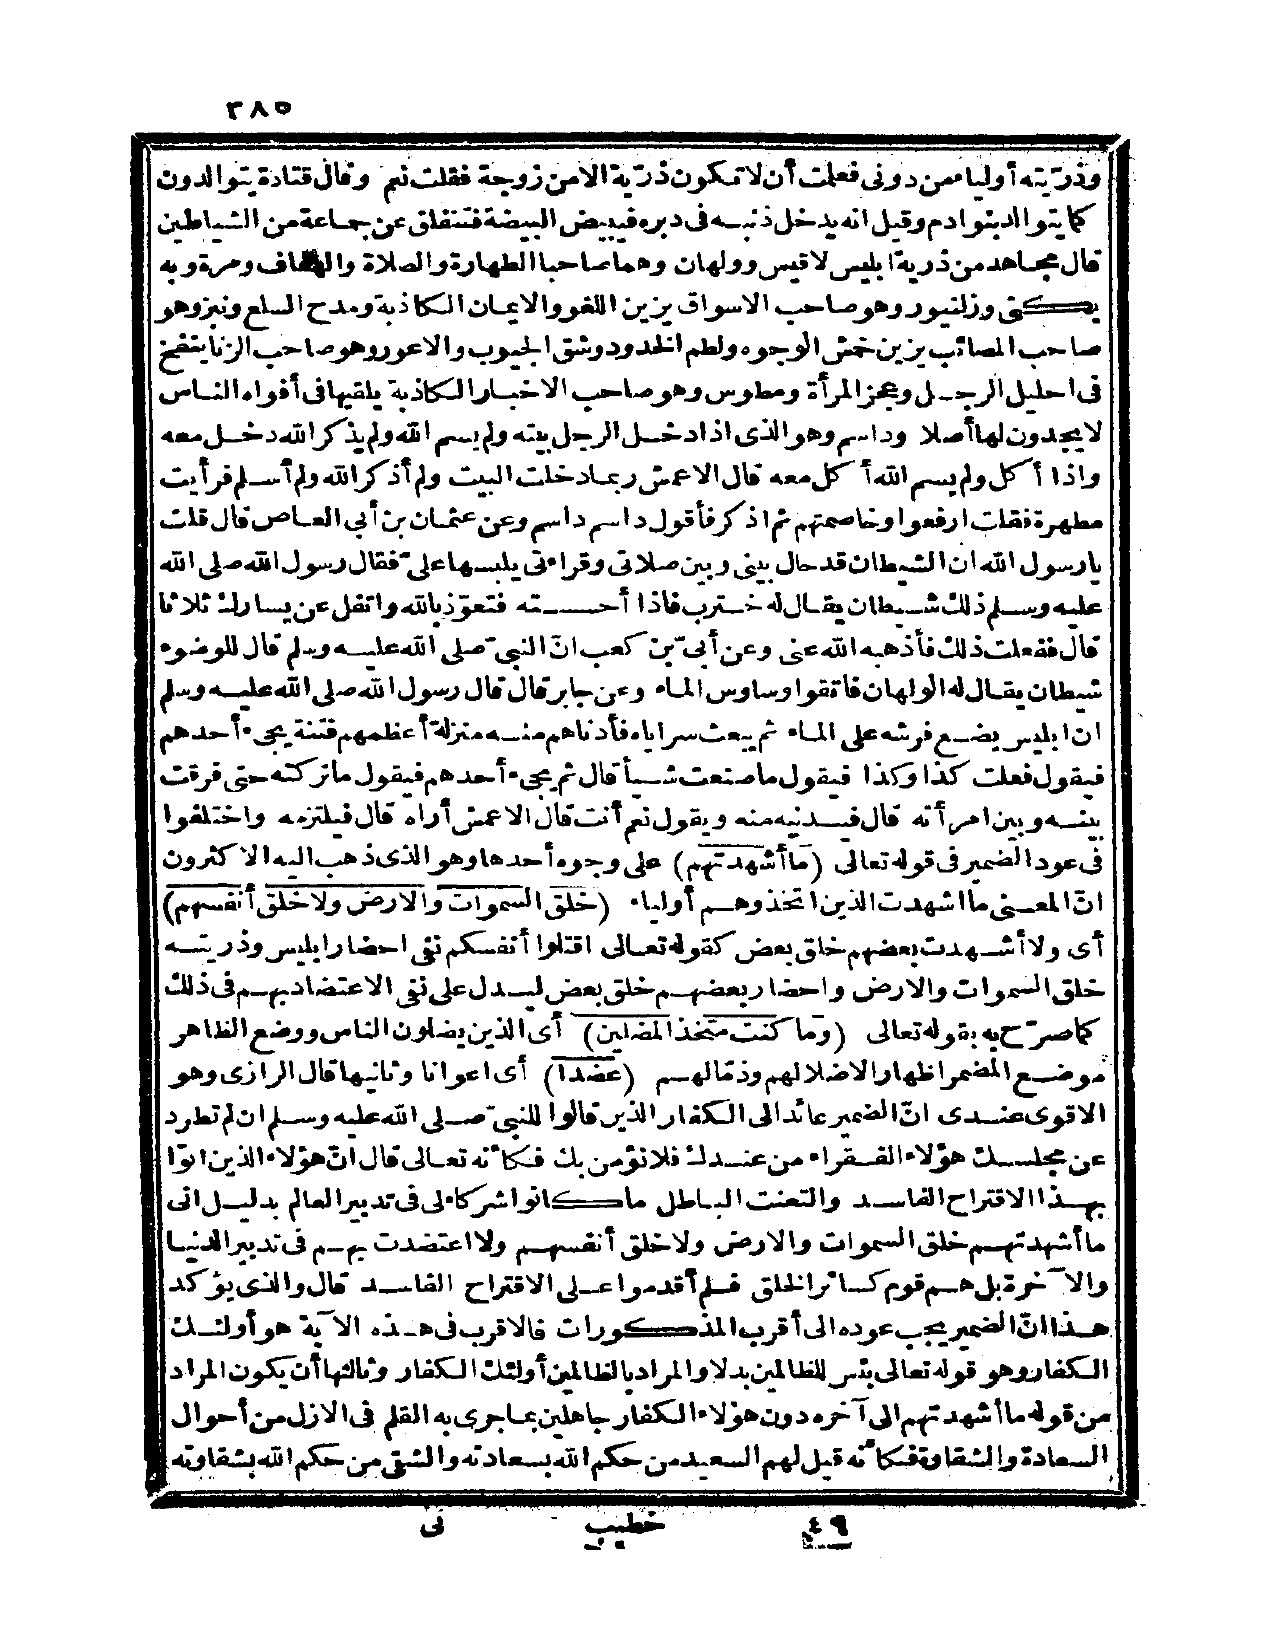 ٣٨٥
وذرّيته أولياء من دونى فعلت أن لا تكون ذرّية الا من زوجة فقلت نم وقال قتادة يتوالدون
كما يتوالد بنو ادم وقيل انه يدخل ذنبه فى دبره فيبيض البيضة فتنفلق عن جماعة من الشياطين
قال مجاهد من ذرية ابليس لاقيس وولهان وهما صاحبا الطهارة والصلاة والهفاف ومرة وبه
يكنى وزلنبور وهو صاحب الاسواق يزين اللغو والايمان الكاذبة ومدح السلع وثبر وهو
صاحب المصائب يزين خمش الوجوه ولطم الخدود وشق الجيوب والاعور وهو صاحب الزنا ينفخ
فى احليل الرجل وعجز المرأة ومطوس وهو صاحب الاخبار الكاذبة يلقيها فى أفواه الناس
لا يجدون لها أصلا وداسم وهو الذى اذا دخل الرجل بيته ولم يسم الله ولم يذكر الله دخل معه
واذا أكل ولم يسم الله أكل معه قال الاعمش ربما دخلت البيت ولم أذكر الله ولم أسلم فرأيت
مطهرة فقلت ارفعوا وخاصمتهم ثم اذكر فأقول داسم داسم وعن عثمان بن أبى العاص قال قلت
يا رسول الله ان الشيطان قد حال بينى وبين صلاتى وقراءتى يلبسها علىّ فقال رسول الله صلى الله
عليه وسلم ذلك شيطان يقال له خنزب فاذا أحسسته فتعوّذ بالله واتفل عن يسارك ثلاثا
قال ففعلت ذلك فأذهبه الله عنى وعن أبىّ بن كعب انّ النبىّ صلى الله عليه وسلم قال للوضوء
شيطان يقال له الولهان فاتقوا وساوس الماء وعن جابر قال قال رسول الله صلى الله عليه وسلم
ان ابليس يضع عرشه على الماء ثم يبعث سراياه فأدناهم منه منزلة أعظمهم فتنة يجىء أحدهم
فيقول فعلت كذا وكذا فيقول ما صنعت شيأ قال ثم يجىء أحدهم فيقول ما تركته حتى فرقت
بينه وبين امرأته قال فيدنيه منه ويقول نعم أنت قال الاعمش أراه قال فيلتزمه واختلفوا
فى عود الضمير فى قوله تعالى (ما أشهدتهم) على وجوه أحدها وهو الذى ذهب اليه الاكثرون
انّ المعنى ما أشهدت الذين اتخذوهم أولياء (خلق السموات والارض ولا خلق أنفسهم)
أى ولا أشهدت بعضهم خلق بعض كقوله تعالى اقتلوا أنفسكم نفى احضار ابليس وذريته
خلق السموات والارض واحضار بعضهم خلق بعض ليدل على نفى الاعتضاد بهم فى ذلك
كما صرّح به بقوله تعالى (وما كنت متخذ المضلين) أى الذين يضلون الناس ووضع الظاهر
موضع المضمر اظهار الاضلالهم وذمّا لهم (عضدا) أى اعوانا وثانيها قال الرازى وهو
الاقوى عندى انّ الضمير عائد الى الكفار الذين قالوا للنبىّ صلى الله عليه وسلم ان لم تطرد
عن مجلسك هؤلاء الفقراء من عندك فلا نؤمن بك فكأنه تعالى قال انّ هؤلاء الذين اتوا
بهذا الاقتراح الفاسد والتعنت الباطل ما كانوا شركاء لى فى تدبير العالم بدليل انى
ما أشهدتهم خلق السموات والارض ولا خلق أنفسهم ولا اعتضدت بهم فى تدبير الدنيا
والآخرة بل هم قوم كسائر الخلق فلم أقدموا على الاقتراح الفاسد قال والذى يؤكد
هذا انّ الضمير يجب عوده الى أقرب المذكورات فالاقرب فى هذه الآية هو أولئك
الكفار وهو قوله تعالى بئس للظالمين بدلا والمراد بالظالمين أولئك الكفار وثالثها أن يكون المراد
من قوله ما أشهدتهم الى آخره دون هؤلاء الكفار جاهلين بما جرى به القلم فى الازل من أحوال
السعادة والشقاوة فكأنه قيل لهم السعيد من حكم الله بسعادته والشقى من حكم الله بشقاوته
٤٩ خطيب نى